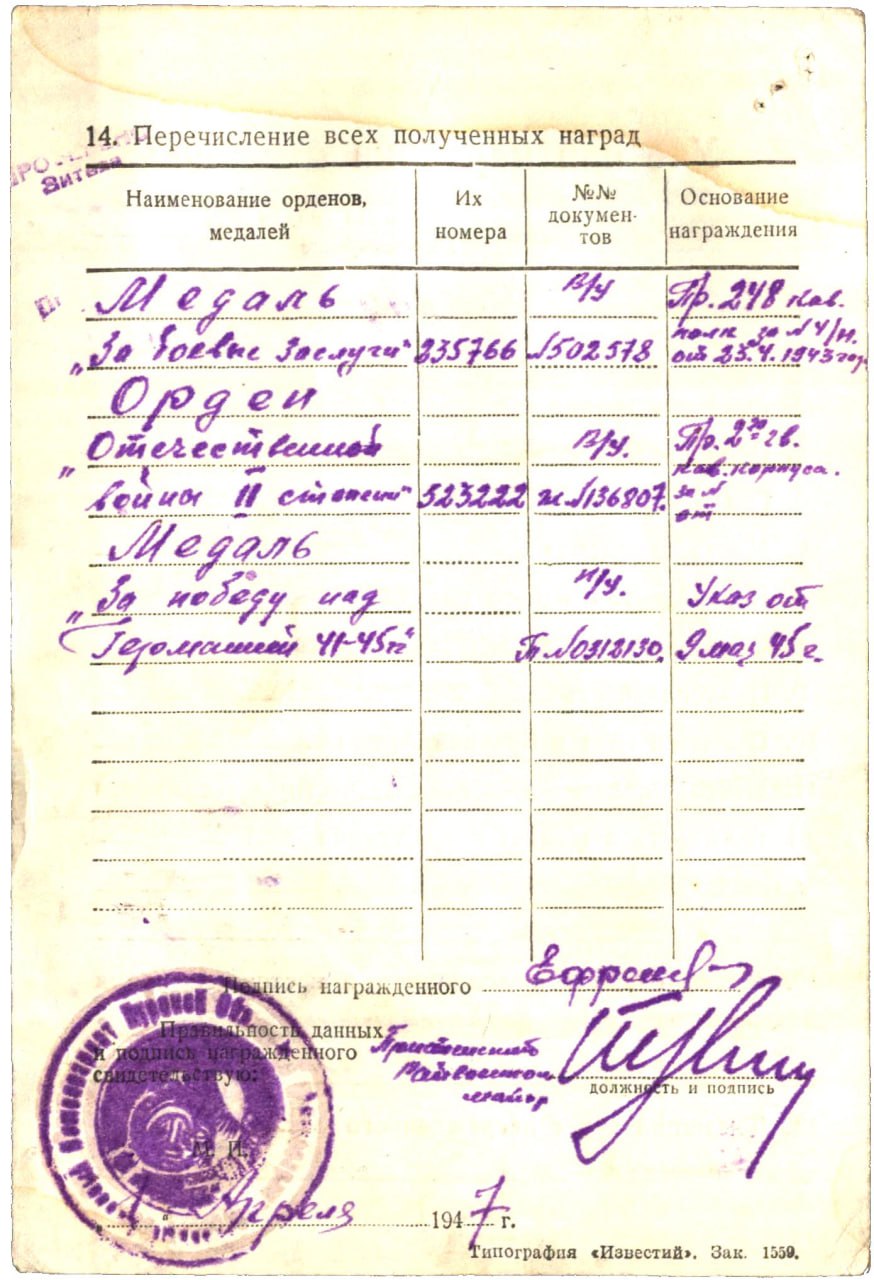 14. Перечисление всех полученных наград
Наименование орденов, медалей
Их номера
№№ докумен- тов
Основание награждения
Медаль в/у Пр. 248 кав.
полк за N 4/н.
„За боевые заслуги“ 235766 №502578 от 23.4.1943 год.
Орден
„Отечественной в/у. Пр. 2го гв.
кав. корпуса.
войны II степени“ 523222 №136807. за N
от
Медаль
„За победу над п/у. Указ от
Германией 41-45гг“ №0312130. 9 мая 45 г.
Подпись награжденного
Правильность данных
и подпись награжденного
свидетельствую:
Райвоенком
майор
должность и подпись
М. П.
1 Апреля 1947 г.
Типография «Известий». Зак. 1559.